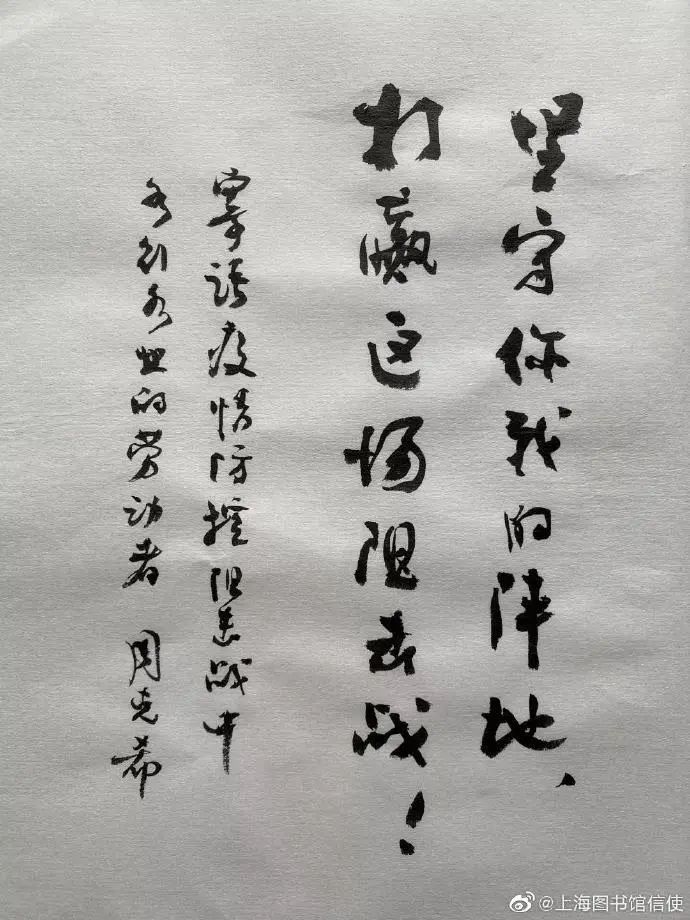 坚守你我的阵地、
打赢这场阻击战！
寄语疫情防控阻击战中
各行各业的劳动者 周克希
@上海图书馆信使